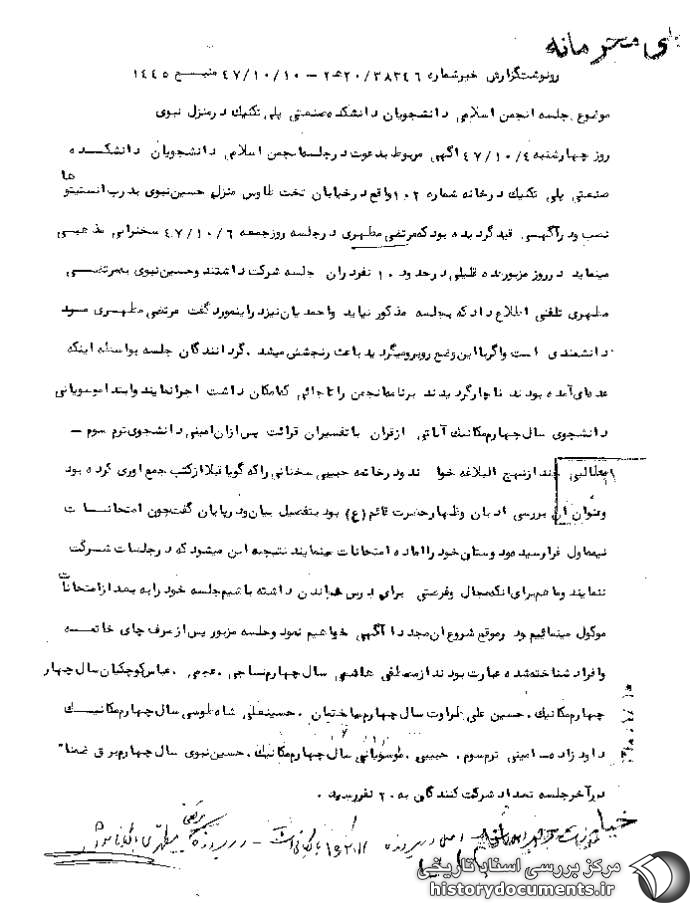 خیلی محرمانه
رونوشت گزارش خبر شماره ۳۸۳۴۶/۲۰ه‍۲ – ۴۷/۱۰/۱۰ منبع ۱۴۴۵
موضوع . جلسه انجمن اسلامی دانشجویان دانشکده صنعتی پلی تکنیک در منزل نبوی
روز چهارشنبه ۴۷/۱۰/۴ آگهی مربوط بدعوت در جلسه انجمن اسلامی دانشجویان دانشکده
صنعتی پلی تکنیک در خانه شماره ۱۰۲ واقع در خیابان تخت طاوس منزل حسین نبوی بدرب انستیتو ها
نصب و در آگهی قید گردیده بود که مرتضی مطهری در جلسه روز جمعه ۴۷/۱۰/۶ سخنرانی مذهبی
مینماید در روز مزبور عده قلیلی در حدود ۱۰ نفر در آن جلسه شرکت داشتند و حسین نبوی به مرتضی
مطهری تلفنی اطلاع داد که بجلسه مذکور نیاید و احمدیان نیز در اینمورد گفت مرتضی مطهری مرد
دانشمندی است و اگر با این وضع روبرو میگردید باعث رنجشش میشد . گردانندگان جلسه بواسطه اینکه
عده ای آمده بودند ناچار گردیدند برنامه انجمن را تا جائی که امکان داشت اجرا نمایند و ابتدا موسویانی
دانشجوی سال چهارم مکانیک آیاتی از قران با تفسیر آن قرائت پس از آن امینی دانشجوی ترم سوم –
مطالبی چند از نهج البلاغه خواند و در خاتمه حبیبی سخنانی را که گویا قبلا از کتب جمع آوری کرده بود
و عنوان آن بررسی ادیان و ظهار حضرت قائم (ع) بود بتفصیل بیان و در پایان گفت چون امتحانات
نیمه اول فرا رسیده و دوستان خود را آماده امتحانات مینمایند نتیجه این میشود که در جلسات شرکت
ننمایند و ما هم برای آنکه مجال و فرصتی برای درس خواندن داشته باشیم جلسه خود را به بعد از امتحانات
موکول مینمائیم و در موقع شروع آن مجددا آگهی خواهیم نمود و جلسه مزبور پس از صرف چای خاتمه
و افراد شناخته شده عبارت بودند از مصطفی هاشمی سال چهارم نساجی . عجمی . عباس کوچکیان سال چهار
چهارم مکانیک . حسین علی طراوت سال چهارم ساختمان . حسینعلی شاه طوسی سال چهارم مکانیک
داود زاده – امینی ترم سوم . حبیبی . موسویانی سال چهارم مکانیک . حسین نبوی سال چهارم برق ضمنا"
در آخر جلسه تعداد شرکت کنندگان به ۲۰ نفر رسید .
اصل در پرونده
مرکز بررسی اسناد تاریخی
historydocuments.ir